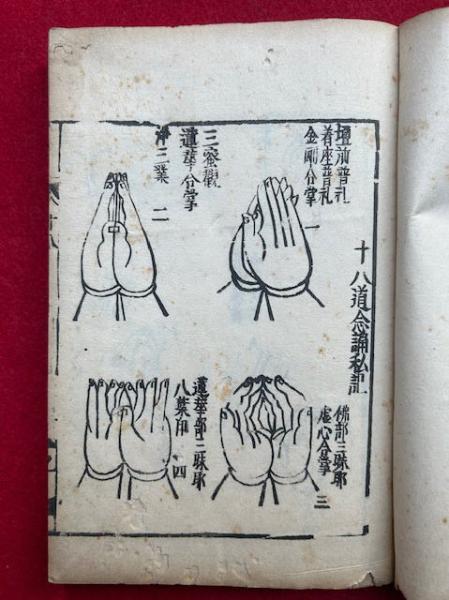 十八道念誦私記
壇前普礼
着座普礼
金剛合掌
一
三密觀
蓮華合掌
浄三業
二
佛部三昧耶
虚心合掌
三
蓮華部三昧耶
八葉印
四